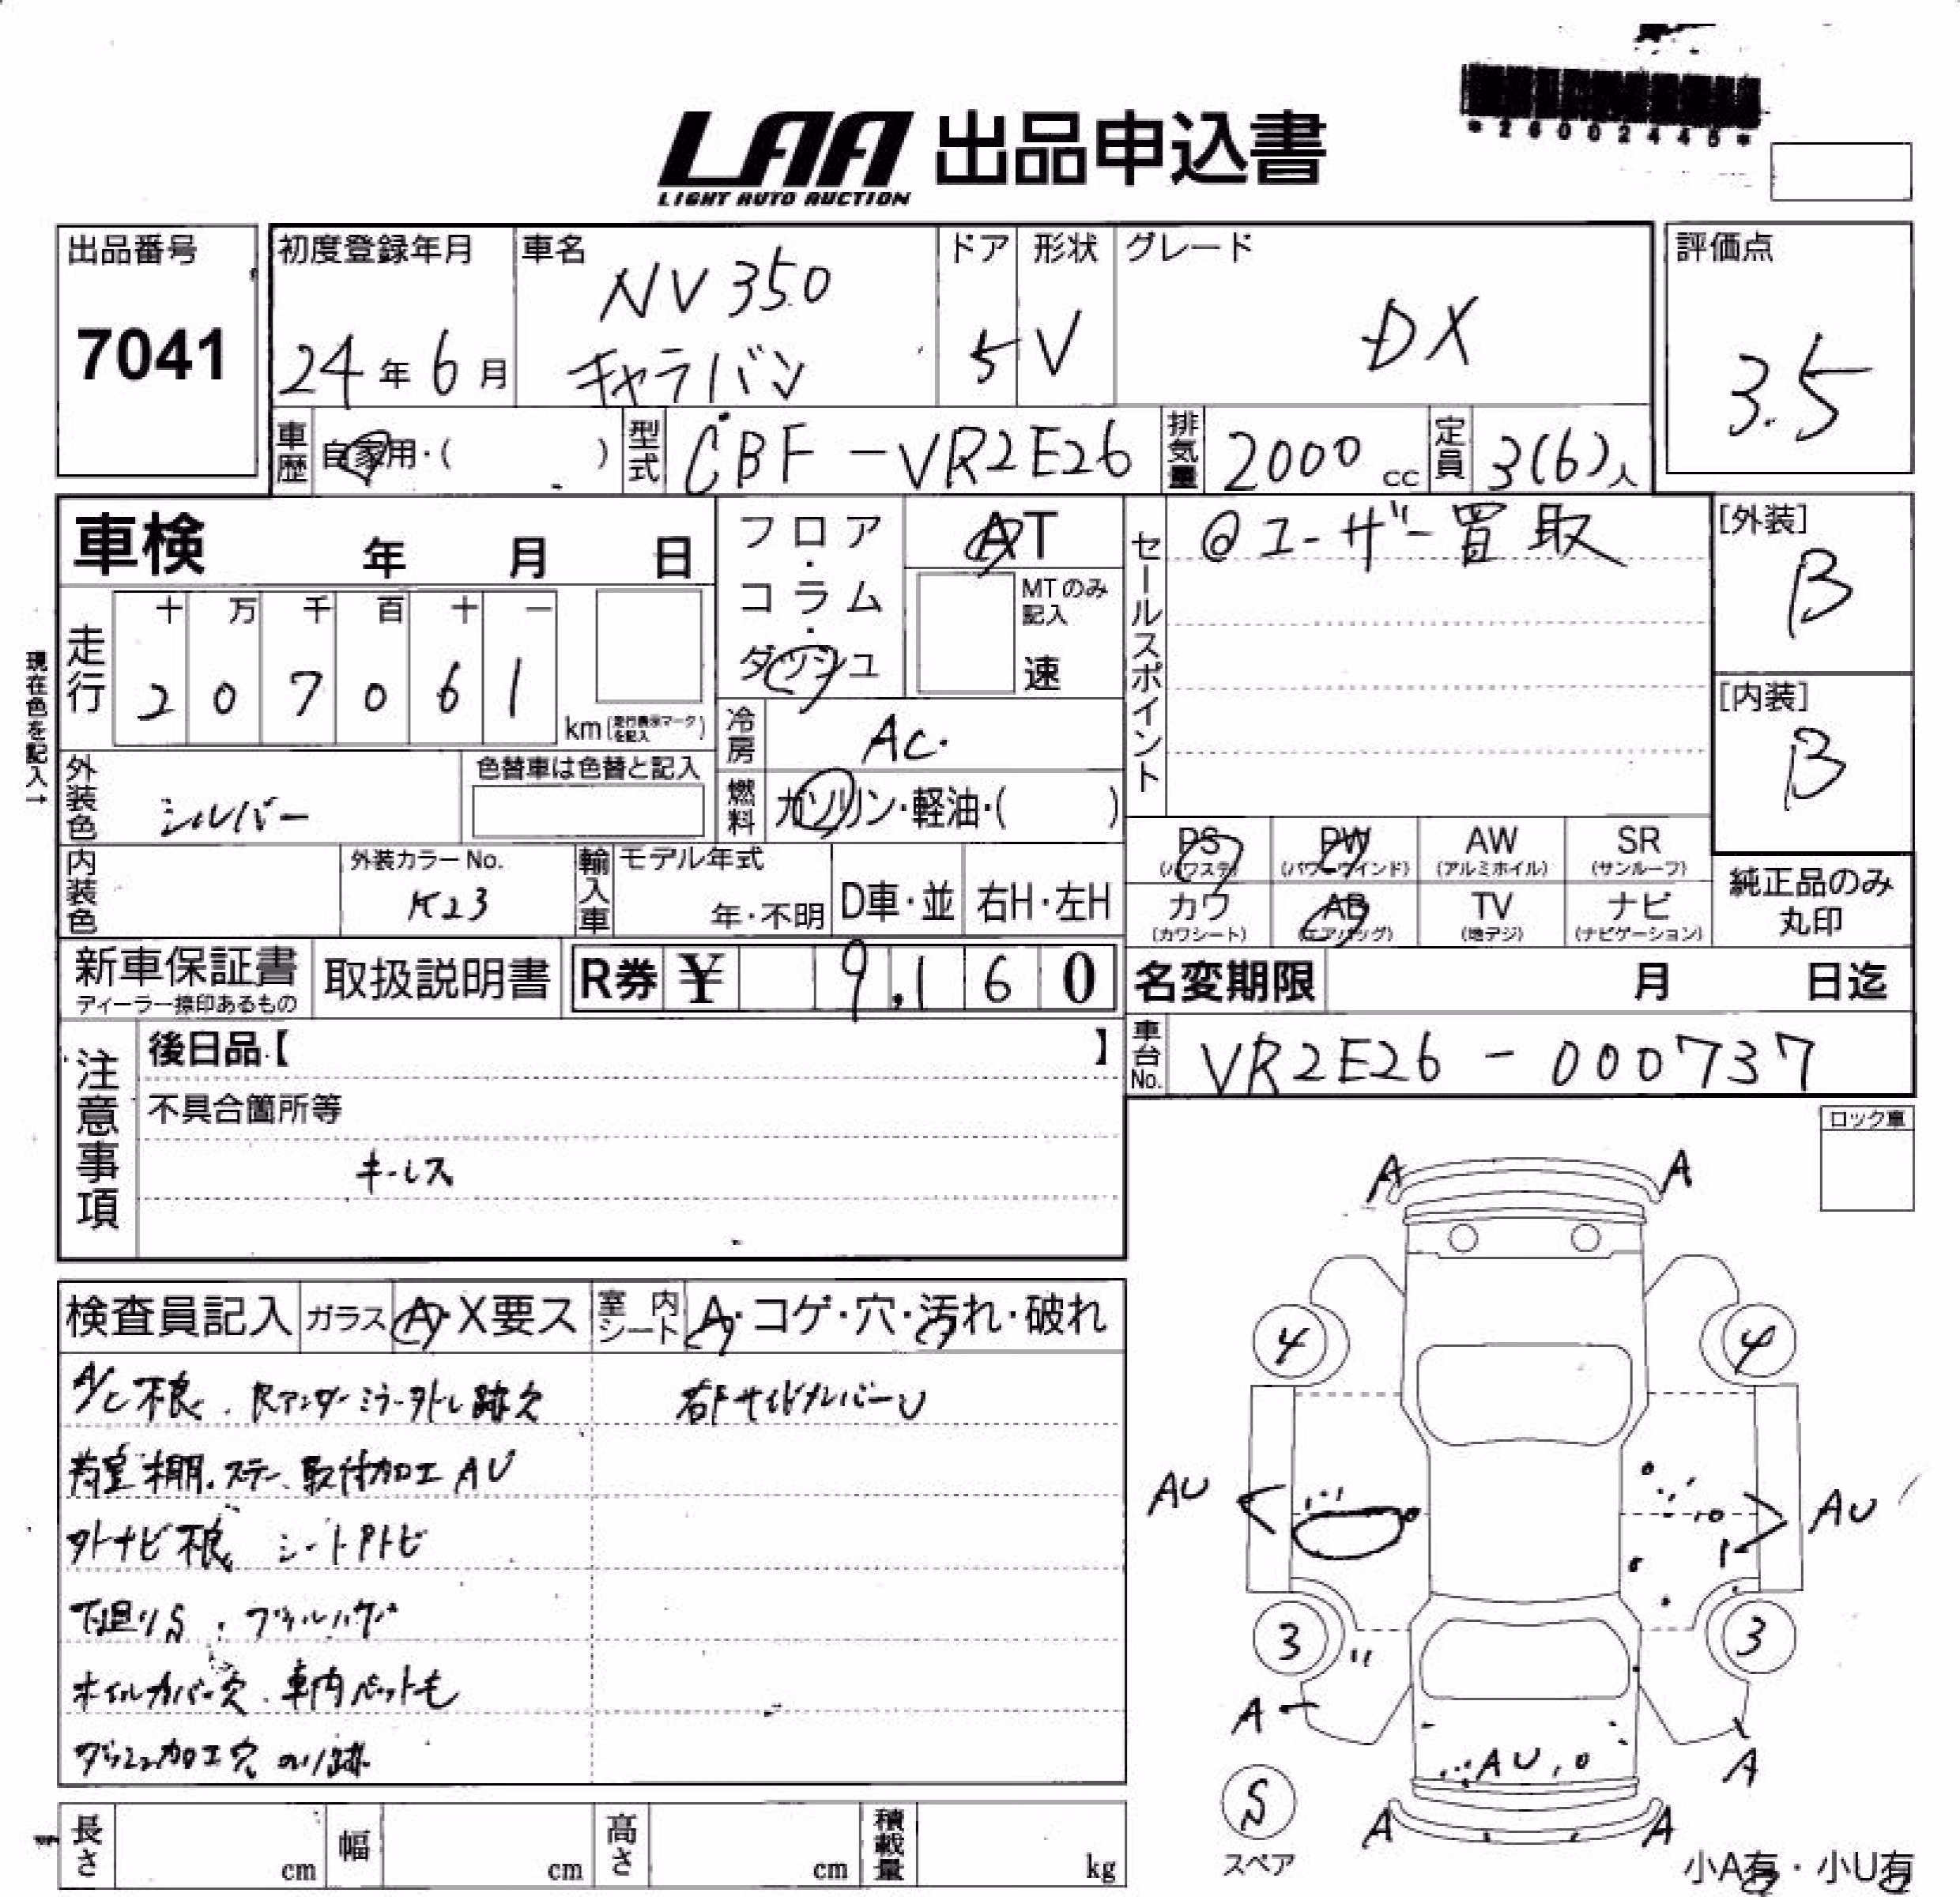 *26002445*
LAA 出品申込書
LIGHT AUTO AUCTION
出品番号
7041
初度登録年月
24年6月
車名
NV350
キャラバン
ドア
5
形状
V
グレード
DX
評価点
3.5
車歴 自家用・( )
型式 CBF-VR2E26
排気量 2000cc
定員 3(6)人
車検 年 月 日
フロア・コラム・ダッシュ
AT
MTのみ記入
速
セールスポイント
@ユーザー買取
[外装]
B
[内装]
B
現在色を記入→
走行
十 万 千 百 十 一
2 0 7 0 6 1
km(走行表示マークを記入)
冷房 AC
燃料 ガソリン・軽油・( )
外装色 シルバー
色替車は色替と記入
内装色
外装カラーNo.
K23
輸入車
モデル年式
年・不明
D車・並
右H・左H
PS (パワステ)
PW (パワーウインド)
AW (アルミホイル)
SR (サンルーフ)
カワ (カワシート)
AB (エアバッグ)
TV (地デジ)
ナビ (ナビゲーション)
純正品のみ丸印
新車保証書
ディーラー捺印あるもの
取扱説明書
R券 ¥ 9,160
名変期限 月 日迄
車台No. VR2E26-000737
注意事項
後日品【 】
不具合箇所等
キーレス
ロック車
検査員記入
ガラス A・X要ス
室内シート A・コゲ・穴・汚れ・破れ
A/C不良、Rアンダーミラー外し跡穴
荷室棚、ステー、取付加工AU
外ナビ不良 シート
下廻りS
ホイルカバー欠、車内ペット毛
ダッシュ加工穴 のり跡
A A
4 4
AU AU
3 3
A A
AU,0
S
スペア
A A
小A有・小U有
長さ cm
幅 cm
高さ cm
積載量 kg